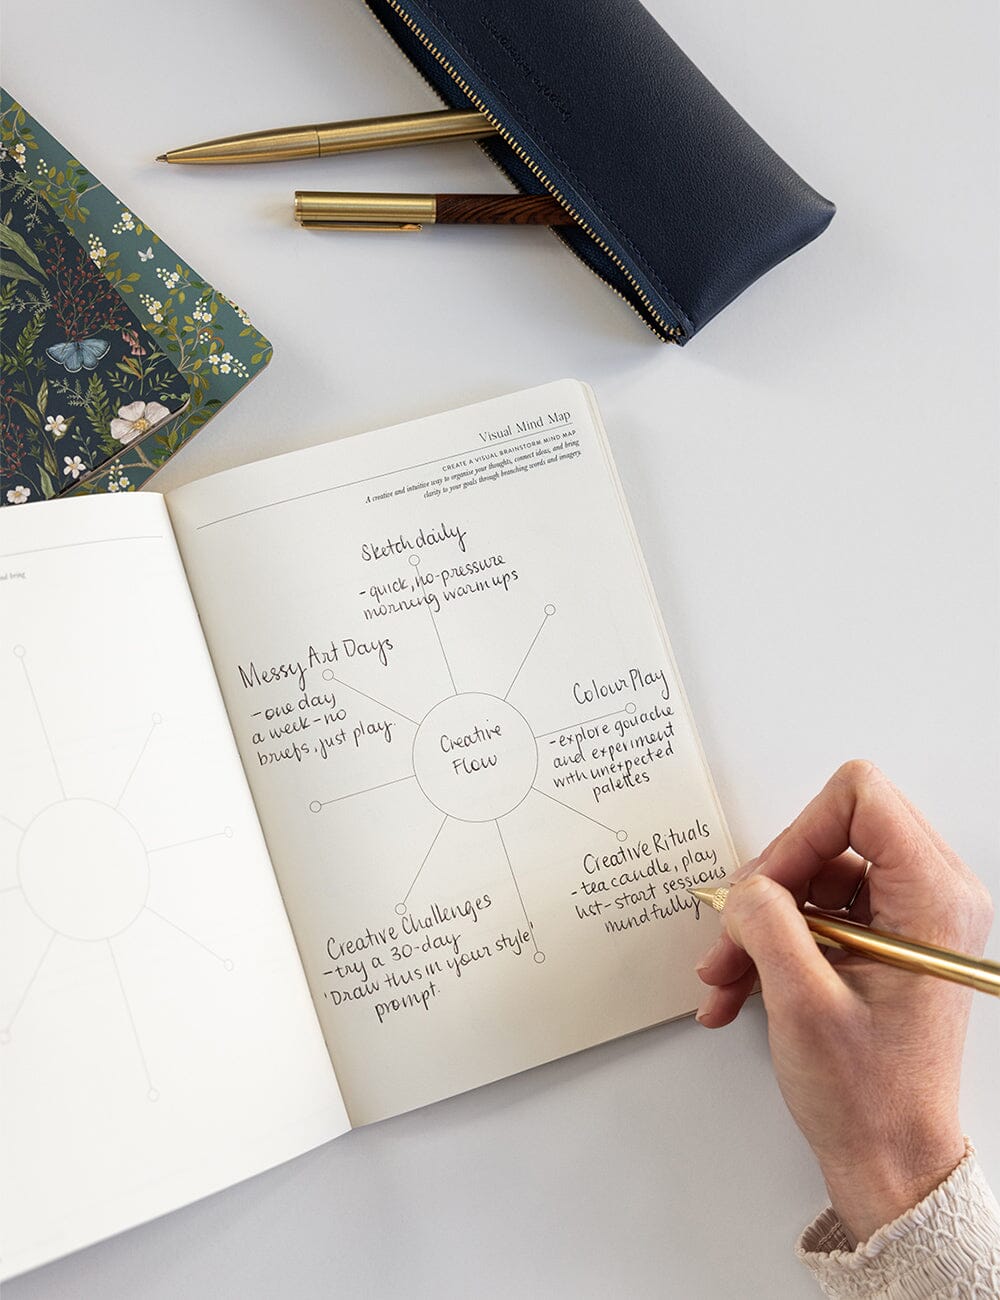 Visual Mind Map
CREATE A VISUAL BRAINSTORM MIND MAP
A creative and intuitive way to organise your thoughts, connect ideas, and bring
clarity to your goals through branching words and imagery.
nd bring
Sketch daily
- quick, no-pressure
morning warmups
Messy Art Days
- one day
a week - no
briefs, just play.
Colour Play
- explore gouache
and experiment
with unexpected
palettes
Creative
Flow
Creative Rituals
- tea candle, play
list - start sessions
mindfully
Creative Challenges
- try a 30-day
'Draw this in your style'
prompt.